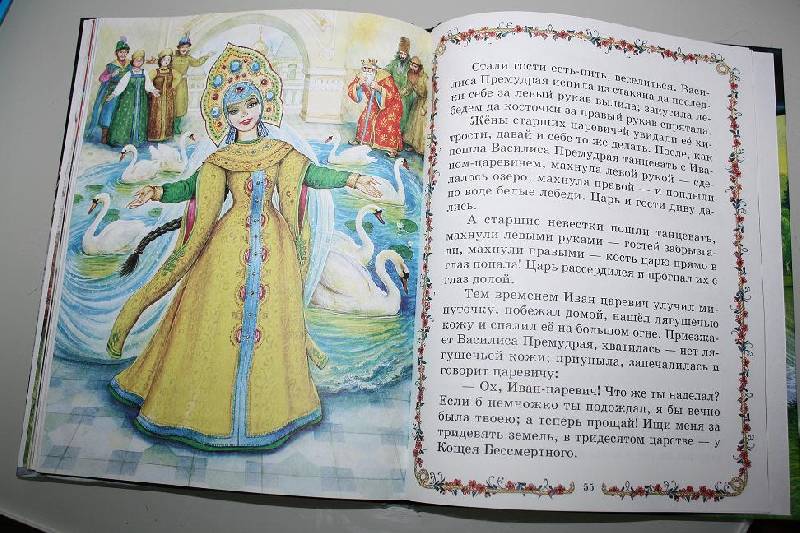 Стали гости есть-пить, веселиться. Васи-
лиса Премудрая испила из стакана да послед-
ки себе за левый рукав вылила; закусила ле-
бедем да косточки за правый рукав спрятала.
Жёны старших царевичей увидали её хи-
трости, давай и себе то же делать. После, как
пошла Василиса Премудрая танцевать с Ива-
ном-царевичем, махнула левой рукой — сде-
лалось озеро, махнула правой — и поплыли
по воде белые лебеди. Царь и гости диву да-
лись.
А старшие невестки пошли танцевать,
махнули левыми руками — гостей забрызга-
ли, махнули правыми — кость царю прямо в
глаз попала! Царь рассердился и прогнал их с
глаз долой.
Тем временем Иван царевич улучил ми-
нуточку, побежал домой, нашёл лягушечью
кожу и спалил её на большом огне. Приезжа-
ет Василиса Премудрая, хватилась — нет ля-
гушечьей кожи; приуныла, запечалилась и
говорит царевичу:
— Ох, Иван-царевич! Что же ты наделал?
Если б немножко ты подождал, я бы вечно
была твоею; а теперь прощай! Ищи меня за
тридевять земель, в тридесятом царстве — у
Кощея Бессмертного.
55